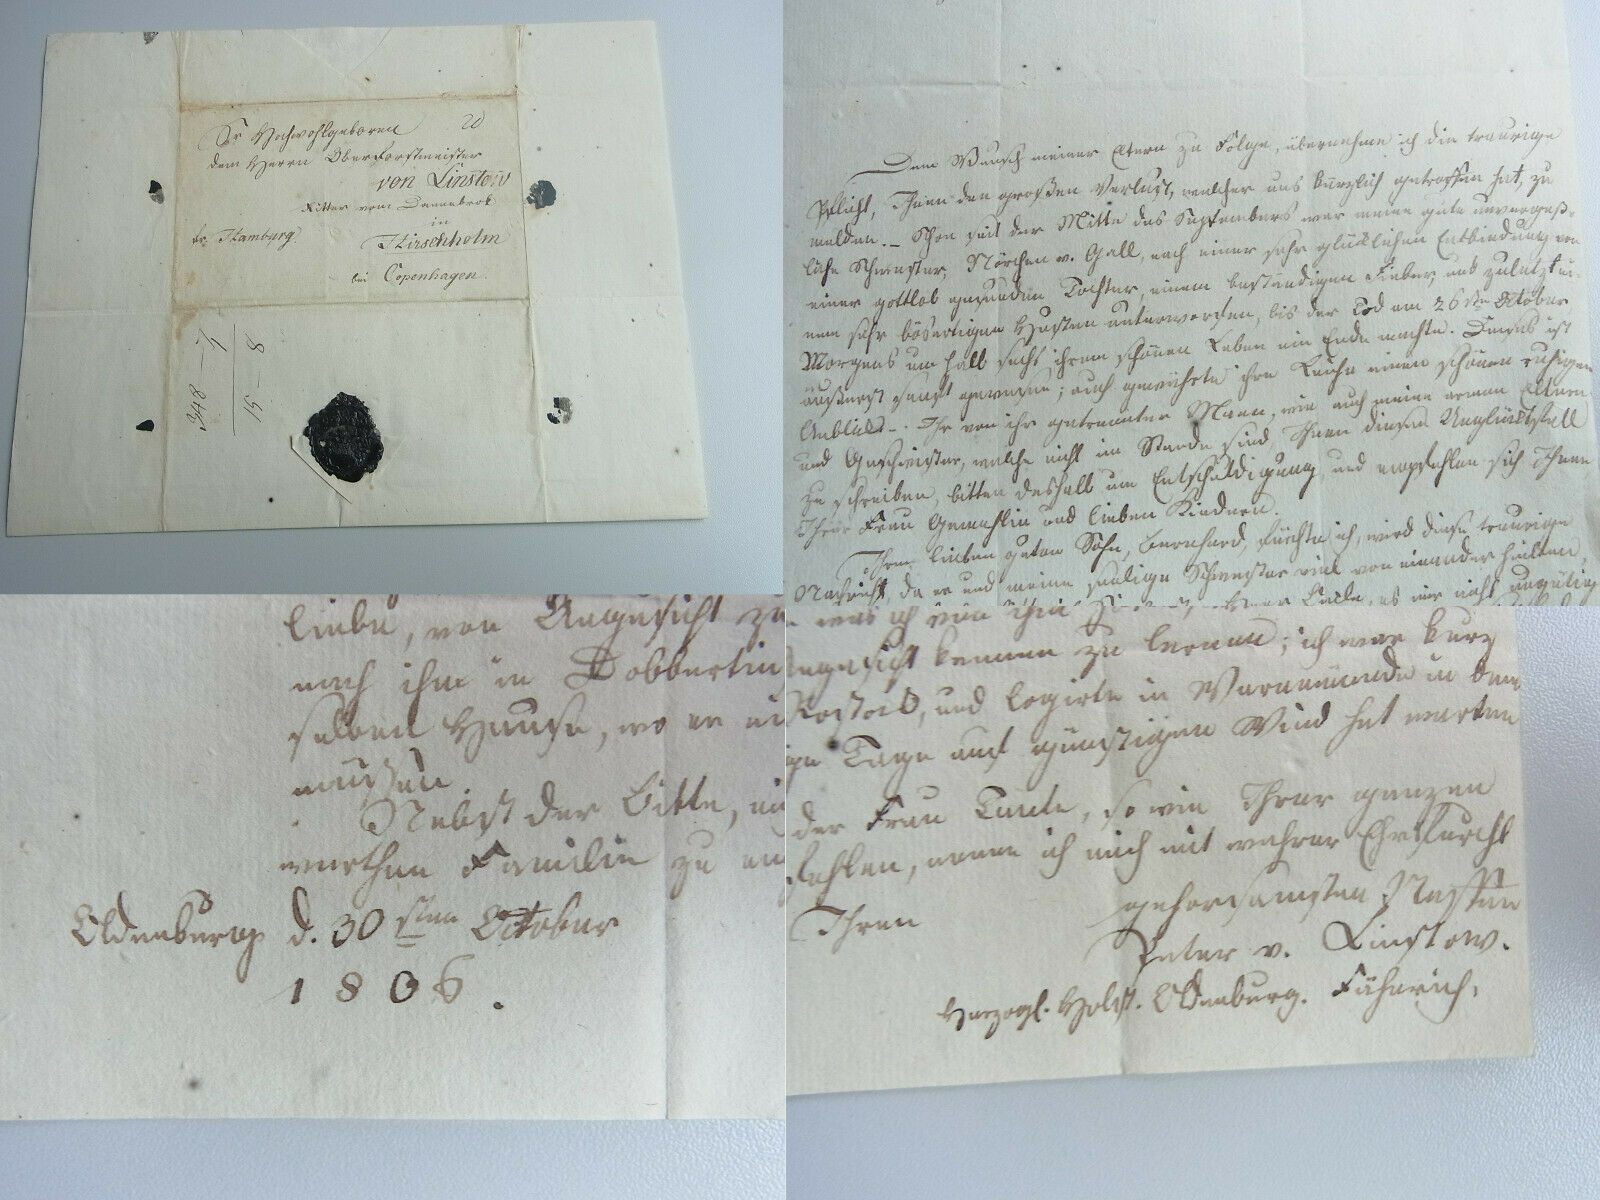 Sr Hochwohlgeboren
dem Herrn Oberforstmeister
von Linstow
Ritter vom Dannebrok
in
fr. Hamburg.
Hirschholm
bei Copenhagen.
348 — 7
15 — 8
Dem Wunsch meiner Eltern zu Folge, übernehme ich die traurige
Pflicht, Ihnen den großen Verlust, welcher uns kürzlich getroffen hat, zu
melden. – Schon seit der Mitte des Septembers war meine gute unvergeß-
liche Schwester, v. Gall, nach einer sehr glücklichen Entbindung von
einer gottlob gesunden Tochter, einem beständigen Fieber, und zuletzt ei-
nem sehr bösartigen Husten unterworfen, bis der Tod am 26sten October,
Morgens um halb sechs ihrem schönen Leben ein Ende machte. Dieses ist
äußerst sanft gewesen; auch gewährte ihre Leiche einen schönen ruhigen
Anblick. – Ihr von ihr getrennter Mann, wie auch meine armen Eltern
und Geschwister, welche nicht im Stande sind, Ihnen diesen Unglücksfall
zu schreiben, bitten deshalb um Entschuldigung, und empfehlen sich Ihnen
Ihrer Frau Gemahlin und lieben Kindern.
Ihrem lieben guten Sohn, Bernhard, fürchte ich, wird diese traurige
Nachricht, da er und meine seelige Schwester viel von einander hielten,
es mir nicht
liebe, von Angesicht zu
nach ihm in Dobbertin
selben Hause, wo er
müssen
Nebst der Bitte,
werthen Familie zu
Oldenburg d. 30sten October
1806.
was ich von ihm
Angesicht kennen zu lernen; ich war kurz
Rostock, und logirte in Warnemünde in dem
Tage auf günstigen Wind hat warten
der Frau Tante, so wie Ihrer ganzen
fehlen, nenne ich mich mit wahrer Ehrfurcht
Ihren gehorsamsten Neffen
Peter v. Linstow.
Herzogl. Holst. Oldenburg. Fähnrich.